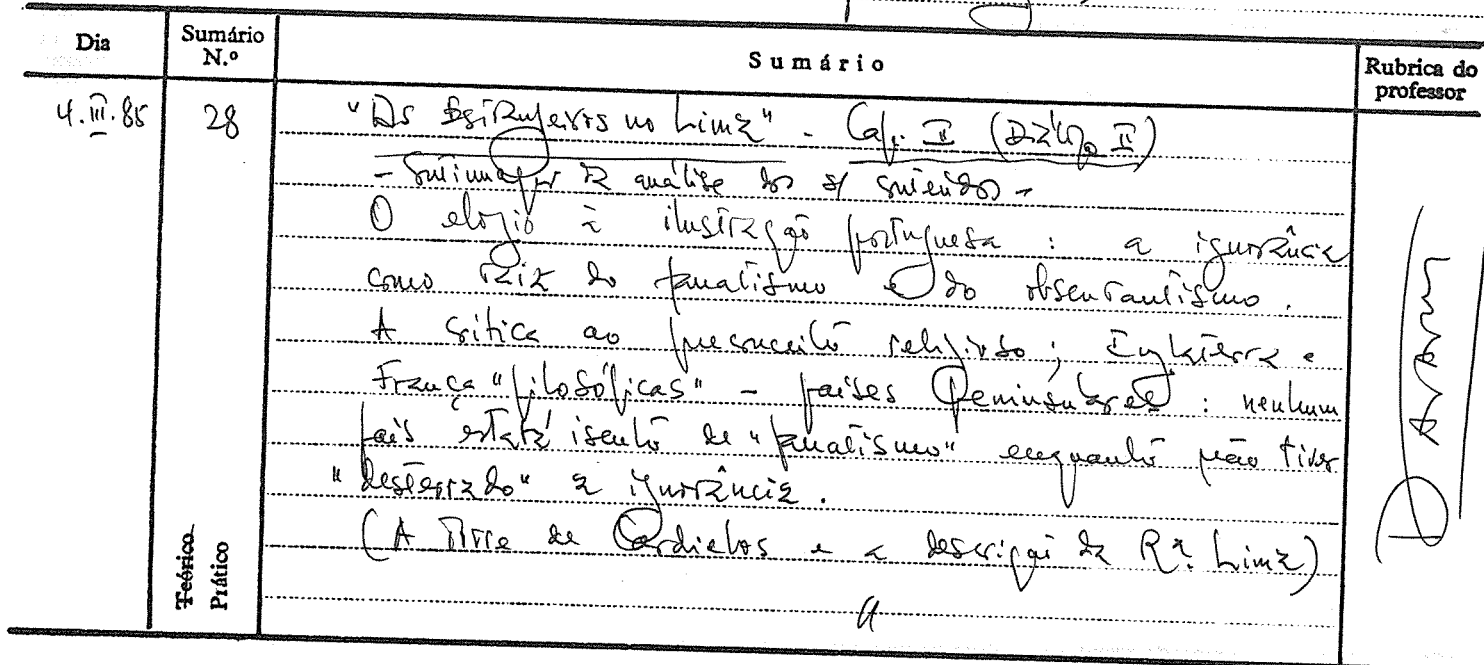 Dia
Sumário N.º
Sumário
Rubrica do professor
4.III.85
28
"Os Estrangeiros no Lima" - Cap. II (Diálogo II)
- Continuação da análise do s/ conteúdo -
O elogio à ilustração portuguesa : a ignorância
como raiz do fanatismo e do obscurantismo.
A crítica ao preconceito religioso; Inglaterra e
França "filosóficas" - países Peninsulares : nenhum
país estará isento de "fanatismo" enquanto não tiver
"desterrado" a ignorância.
(A Torre de Cardielos e a descrição da Rª. Lima)
Teórico
Prático